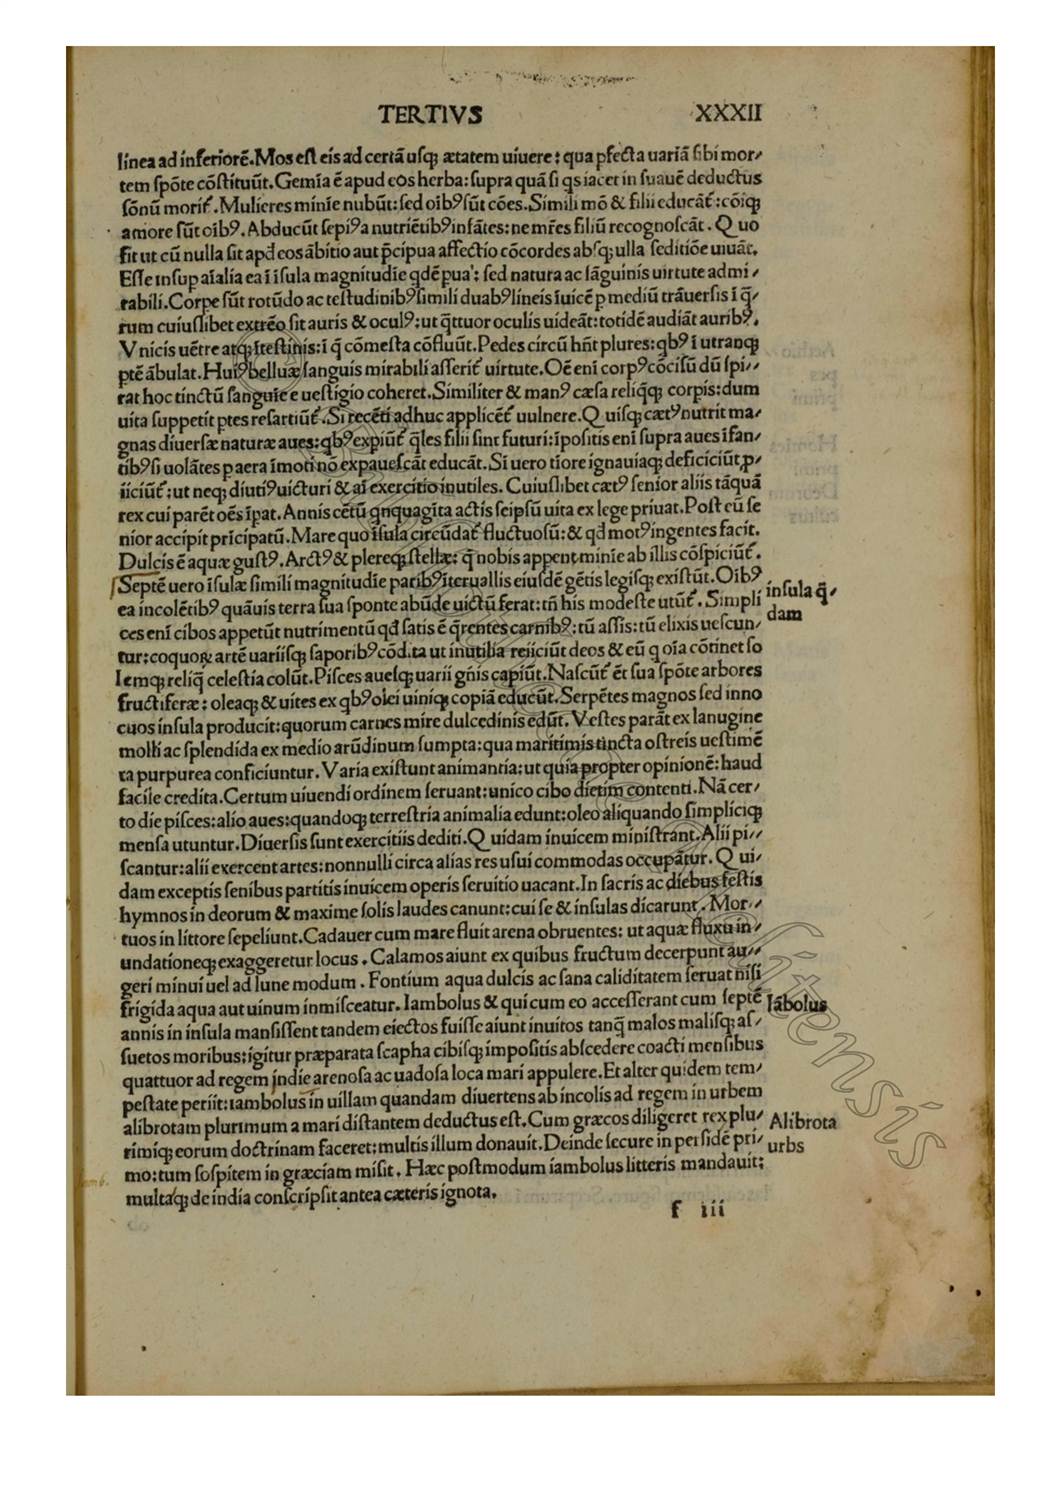 TERTIVS XXXII
linea ad inferiorē. Mos est eis ad certā usq; ætatem uiuere: qua pfecta uariā sibi mor/
tem spōte cōstituūt. Gemīa ē apud eos herba: supra quā si qs iacet in suauē deductus
sōnū morit᷑. Mulieres minīe nubūt: sed oībꝰ sūt cōes. Simili mō & filii educāt᷑: cōiq;
amore sūt oībꝰ. Abducūt sepiꝰ a nutriētibꝰ infātes: ne mr̄es filiū recognoscāt. Quo
fit ut cū nulla sit apđ eos ābitio aut p̄cipua affectio cōcordes absq; ulla seditiōe uiuāt.
Esse insup aīalia ea ī īsula magnitudīe qdē pua: sed natura ac sāguinis uirtute admi/
rabili. Corpe sūt rotūdo ac testudinibꝰ simili duabꝰ lineis īuicē p mediū trāuersis ī q̄/
rum cuiuslibet extrēo sit auris & oculꝰ: ut q̄ttuor oculis uideāt: totidē audiāt auribꝰ.
Vnicis uētre atq; ītestinis: ī q̄ cōmesta cōfluūt. Pedes circū hn̄t plures: qbꝰ ī utranq;
ptē ābulat. Huiꝰ belluæ sanguis mirabili asserit᷑ uirtute. Oē enī corpꝰ cōcisū dū spi//
rat hoc tinctū sanguīe e uestigio coheret. Similiter & manꝰ cæsa reliq̄q; corpis: dum
uita suppetit ptes resartiūt᷑. Si recēti adhuc applicēt᷑ uulnere. Quisq; cætꝰ nutrit ma/
gnas diuersæ naturæ aues: qbꝰ expiūt᷑ q̄les filii sint futuri: īpositis enī supra aues īfan/
tibꝰ si uolātes p aera īmoti nō expauescāt educāt. Si uero tīore ignauiaq; deficiciūt ꝓ/
iiciūt᷑: ut neq; diutiꝰ uicturi & aī exercitio inutiles. Cuiuslibet cætꝰ senior aliis tāquā
rex cui parēt oēs īpat. Annis cētū qnquagīta actis seipsū uita ex lege priuat. Post eū se
nior accipit pricipatū. Mare quo īsula circūdat᷑ fluctuosū: & qđ motꝰ ingentes facit.
Dulcis ē aquæ gustꝰ. Arctꝰ & plereq; stellæ: q̄ nobis appent minīe ab illis cōspiciūt᷑.
Septē uero īsulæ simili magnitudīe paribꝰ īteruallis eiusdē gētis legisq; existūt. Oībꝰ
ea incolētibꝰ quāuis terra sua sponte abūde uictū ferat: tn̄ his modeste utūt᷑. Simpli
ces enī cibos appetūt nutrimentū qđ satis ē q̄rentes carnibꝰ: tū assis: tū elixis uescun/
tur: coquoꝝ artē uariisq; saporibꝰ cōdita ut inutilia reiiciūt deos & eū q oīa cōtinet so
lemq; reliq̄ celestia colūt. Pisces auesq; uarii gn̄is capiūt. Nascūt᷑ ēt sua spōte arbores
fructiferæ: oleaq; & uites ex qbꝰ olei uiniq; copiā educūt. Serpētes magnos sed inno
cuos insula producit: quorum carnes mire dulcedinis edūt. Vestes parāt ex lanugine
molli ac splendida ex medio arūdinum sumpta: qua maritimis tincta ostreis uestimē
ta purpurea conficiuntur. Varia existunt animantia: ut quia propter opinionē: haud
facile credita. Certum uiuendi ordinem seruant: unico cibo dietim contenti. Nā cer/
to die pisces: alio aues: quandoq; terrestria animalia edunt: oleo aliquando simpliciq;
mensa utuntur. Diuersis sunt exercitiis dediti. Quidam inuicem ministrant. Alii pi//
scantur: alii exercent artes: nonnulli circa alias res usui commodas occupātur. Qui/
dam exceptis senibus partitis inuicem operis seruitio uacant. In sacris ac diebus festis
hymnos in deorum & maxime solis laudes canunt: cui se & insulas dicarunt. Mor//
tuos in littore sepeliunt. Cadauer cum mare fluit arena obruentes: ut aquæ fluxu in/
undationeq; exaggeretur locus. Calamos aiunt ex quibus fructum decerpunt au//
geri minui uel ad lune modum. Fontium aqua dulcis ac sana caliditatem seruat nisi
frigida aqua aut uinum inmisceatur. Iambolus & qui cum eo accesserant cum septē
annis in insula mansissent tandem eiectos fuisse aiunt inuitos tanq̄ malos malisq; as/
suetos moribus: igitur præparata scapha cibisq; impositis abscedere coacti mensibus
quattuor ad regem indie arenosa ac uadosa loca mari appulere. Et alter quidem tem/
pestate periit: iambolus in uillam quandam diuertens ab incolis ad regem in urbem
alibrotam plurimum a mari distantem deductus est. Cum græcos diligeret rex plu/
rimiq; eorum doctrinam faceret; multis illum donauit. Deinde secure in persidē pri/
mo: tum sospitem in græciam misit. Hæc postmodum iambolus litteris mandauit;
multaq; de india conscripsit antea cæteris ignota.
insula q̄/
dam
Iābolus
Alibrota
urbs
f iii